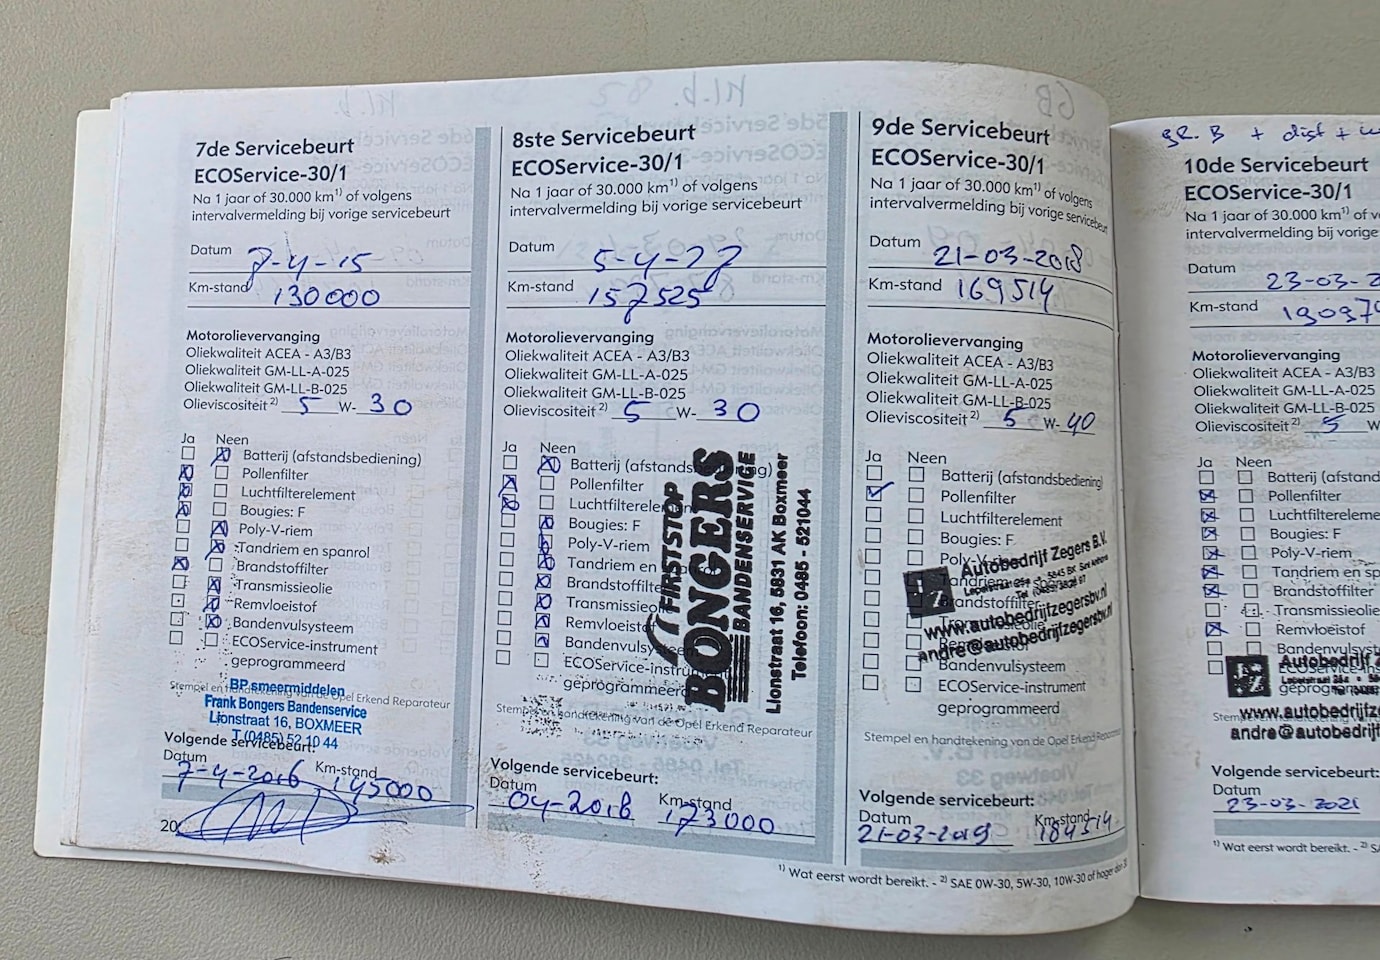 7de Servicebeurt
ECOService-30/1
Na 1 jaar of 30.000 km1) of volgens
intervalvermelding bij vorige servicebeurt
Datum 7-4-15
Km-stand 130000
Motorolievervanging
Oliekwaliteit ACEA - A3/B3
Oliekwaliteit GM-LL-A-025
Oliekwaliteit GM-LL-B-025
Olieviscositeit 2) 5 W- 30
Ja Neen
Batterij (afstandsbediening)
Pollenfilter
Luchtfilterelement
Bougies: F
Poly-V-riem
Tandriem en spanrol
Brandstoffilter
Transmissieolie
Remvloeistof
Bandenvulsysteem
ECOService-instrument
geprogrammeerd
Stempel en handtekening van de Opel Erkend Reparateur
BP smeermiddelen
Frank Bongers Bandenservice
Lionstraat 16, BOXMEER
T (0485) 52 10 44
Volgende servicebeurt:
Datum Km-stand
7-4-2016 145000
20
8ste Servicebeurt
ECOService-30/1
Na 1 jaar of 30.000 km1) of volgens
intervalvermelding bij vorige servicebeurt
Datum 5-4-17
Km-stand 157525
Motorolievervanging
Oliekwaliteit ACEA - A3/B3
Oliekwaliteit GM-LL-A-025
Oliekwaliteit GM-LL-B-025
Olieviscositeit 2) 5 W- 30
Ja Neen
Batterij (afstandsbediening)
Pollenfilter
Luchtfilterelement
Bougies: F
Poly-V-riem
Tandriem en
Brandstoffilter
Transmissieolie
Remvloeistof
Bandenvulsysteem
ECOService-instrument
geprogrammeerd
FIRSTSTOP
BONGERS
BANDENSERVICE
Lionstraat 16, 5831 AK Boxmeer
Telefoon: 0485 - 521044
Stempel en handtekening van de Opel Erkend Reparateur
Volgende servicebeurt:
Datum Km-stand
04-2018 173000
9de Servicebeurt
ECOService-30/1
Na 1 jaar of 30.000 km1) of volgens
intervalvermelding bij vorige servicebeurt
Datum 21-03-2018
Km-stand 169514
Motorolievervanging
Oliekwaliteit ACEA - A3/B3
Oliekwaliteit GM-LL-A-025
Oliekwaliteit GM-LL-B-025
Olieviscositeit 2) 5 W- 40
Ja Neen
Batterij (afstandsbediening)
Pollenfilter
Luchtfilterelement
Bougies: F
Poly-V-riem
Tandriem en spanrol
Brandstoffilter
Bandenvulsysteem
ECOService-instrument
geprogrammeerd
Autobedrijf Zegers B.V.
www.autobedrijfzegersbv.nl
andre@autobedrijfzegersbv.nl
Stempel en handtekening van de Opel Erkend Reparateur
Volgende servicebeurt:
Datum Km-stand
21-03-2019 184514
1) Wat eerst wordt bereikt. - 2) SAE 0W-30, 5W-30, 10W-30 of hoger dan
gr. B + dist +
10de Servicebeurt
ECOService-30/1
Na 1 jaar of 30.000 km1) of
intervalvermelding bij vorige
Datum 23-03-2
Km-stand 19097
Motorolievervanging
Oliekwaliteit ACEA - A3/B3
Oliekwaliteit GM-LL-A-025
Oliekwaliteit GM-LL-B-025
Olieviscositeit 2) 5 W
Ja Neen
Batterij (afstands
Pollenfilter
Luchtfiltereleme
Bougies: F
Poly-V-riem
Tandriem en sp
Brandstoffilter
Transmissieolie
Remvloeistof
Bandenvulsyste
Autobedrijf Z
www.autobedrijfz
andre@autobedrijf
Volgende servicebeurt:
Datum
23-03-2021
1) Wat eerst wordt bereikt. - 2) SA